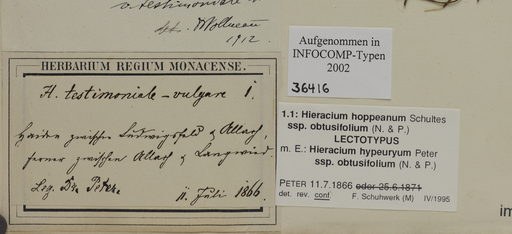 v. testimoniale
det. 
1912.
HERBARIUM REGIUM MONACENSE.
H. testimoniale - vulgare 1.
Haiden zwischen Ludwigsfeld & Allach,
ferner zwischen Allach & Langwied.
Leg. Dr. Peter. 11. Juli 1866.
Aufgenommen in
INFOCOMP-Typen
2002
36416
1.1: Hieracium hoppeanum Schultes
ssp. obtusifolium (N. & P.)
LECTOTYPUS
m. E.: Hieracium hypeuryum Peter
ssp. obtusifolium (N. & P.)
PETER 11.7.1866 oder 25.6.1871
det. rev. conf. F. Schuhwerk (M) IV/1995
im